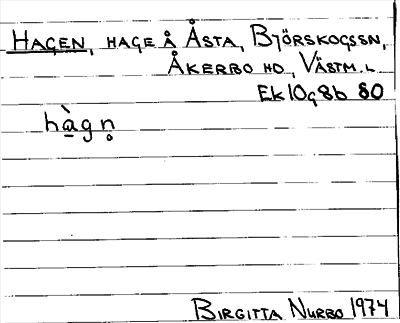 HAGEN, HAGE Å ÅSTA, BJÖRSKOGSSN,
ÅKERBO HD., VÄSTM.L
EK10g8b 80
hà̱gn̥
BIRGITTA NURBO 1974